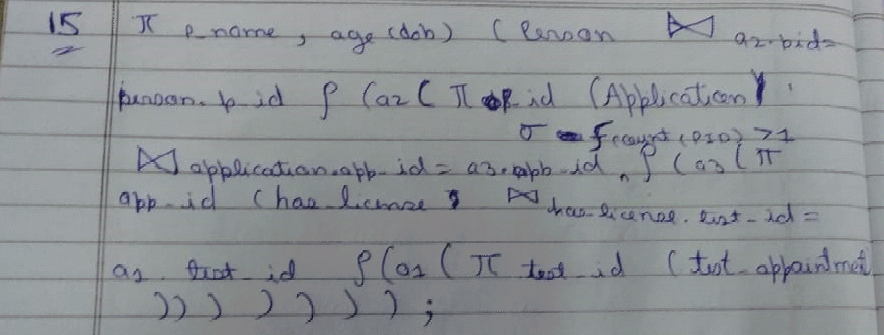 15 π p_name, age(dob) (Person ⋈ a2.pid=
person.p_id ρ (a2 ( π p_id (Application)
σ f(count(PID)>1
⋈ application.app_id = a3.app_id, ρ (a3 ( π
app_id (has_license ⋈ has_license.test_id =
a1.test_id ρ(a1 ( π test_id (test_appointment
)) ) ) ) ) ) ;